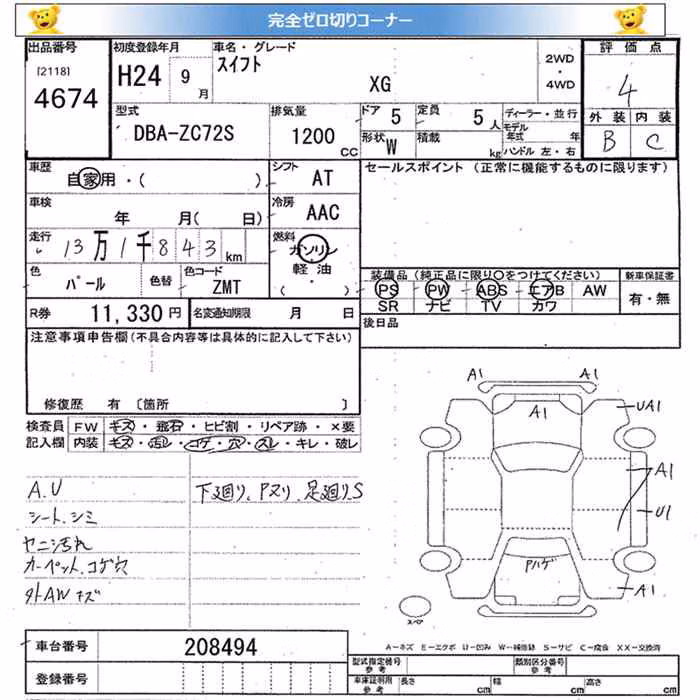 完全ゼロ切りコーナー
出品番号
[2118]
4674
初度登録年月
H24 9月
車名・グレード
スイフト
XG
2WD
・
4WD
評価点
4
外装 内装
B C
型式
DBA-ZC72S
排気量
1200 CC
ドア 5
定員 5人
形状 W
積載 kg
ディーラー・並行
モデル年式 年
ハンドル 左・右
車歴
自家用・( )
シフト AT
セールスポイント (正常に機能するものに限ります)
車検
年 月( 日)
冷房 AAC
走行
13万1千843km
燃料
ガソリン
軽油
( )
色
パール
色替
色コード
ZMT
装備品 (純正品に限り○をつけてください)
PS PW ABS エアB AW
SR ナビ TV カワ
新車保証書
有・無
R券 11,330円
名変通知期限 月 日
後日品
注意事項申告欄 (不具合内容等は具体的に記入して下さい)
修復歴 有 〔箇所 〕
検査員記入欄
FW キズ・飛石・ヒビ割・リペア跡・×要
内装 キズ・汚レ・コゲ・穴・スレ・キレ・破レ
A.U
シート.シミ
カーペット.コゲ穴
外AWキズ
下廻り.Pヌリ.足廻りS
A1 A1
A1
UA1
A1
U1
Pハゲ
A1
スペア
A-キズ E-エクボ U-凹み W-補修跡 S-サビ C-腐食 XX-交換済
車台番号 208494
登録番号
型式指定番号 参考
類別区分番号 参考
車庫証明用 参考
長さ cm 幅 cm 高さ cm